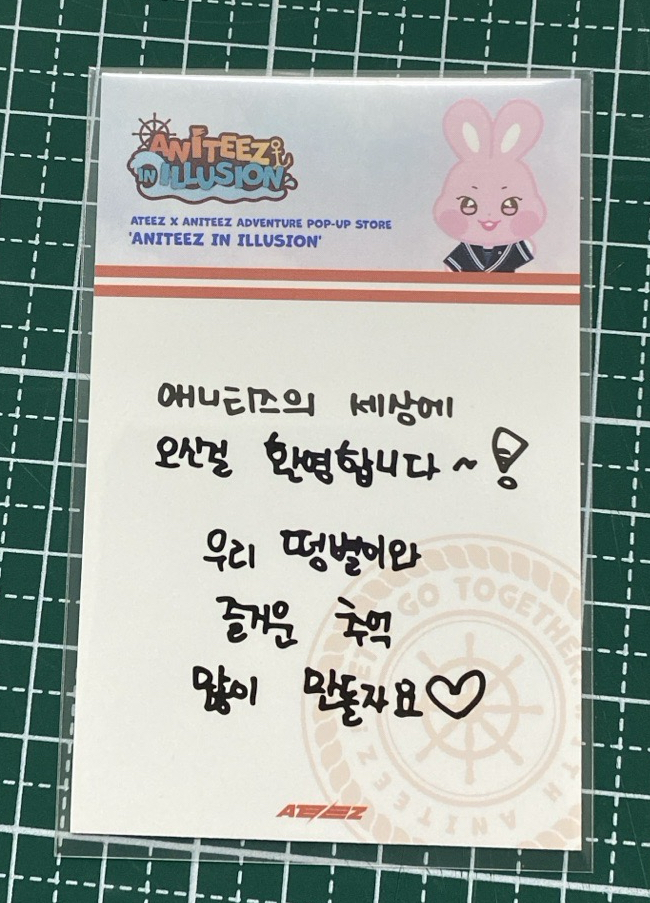 ANITEEZ
IN ILLUSION
ATEEZ X ANITEEZ ADVENTURE POP-UP STORE
'ANITEEZ IN ILLUSION'
애니티즈의 세상에
오신걸 환영합니다~!
우리 떵별이와
즐거운 추억
많이 만들자요♡
GO TOGETHER WITH ANITEEZ
ATEEZ